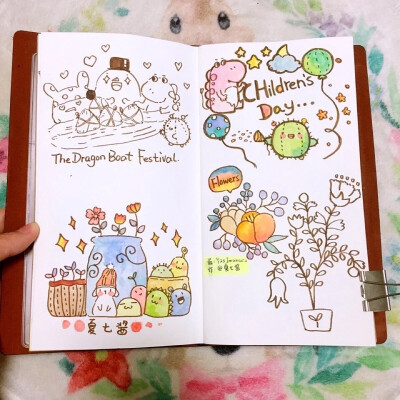 The Dragon Boat Festival.
夏七酱
Children's
Day...
Flowers
@夏七酱